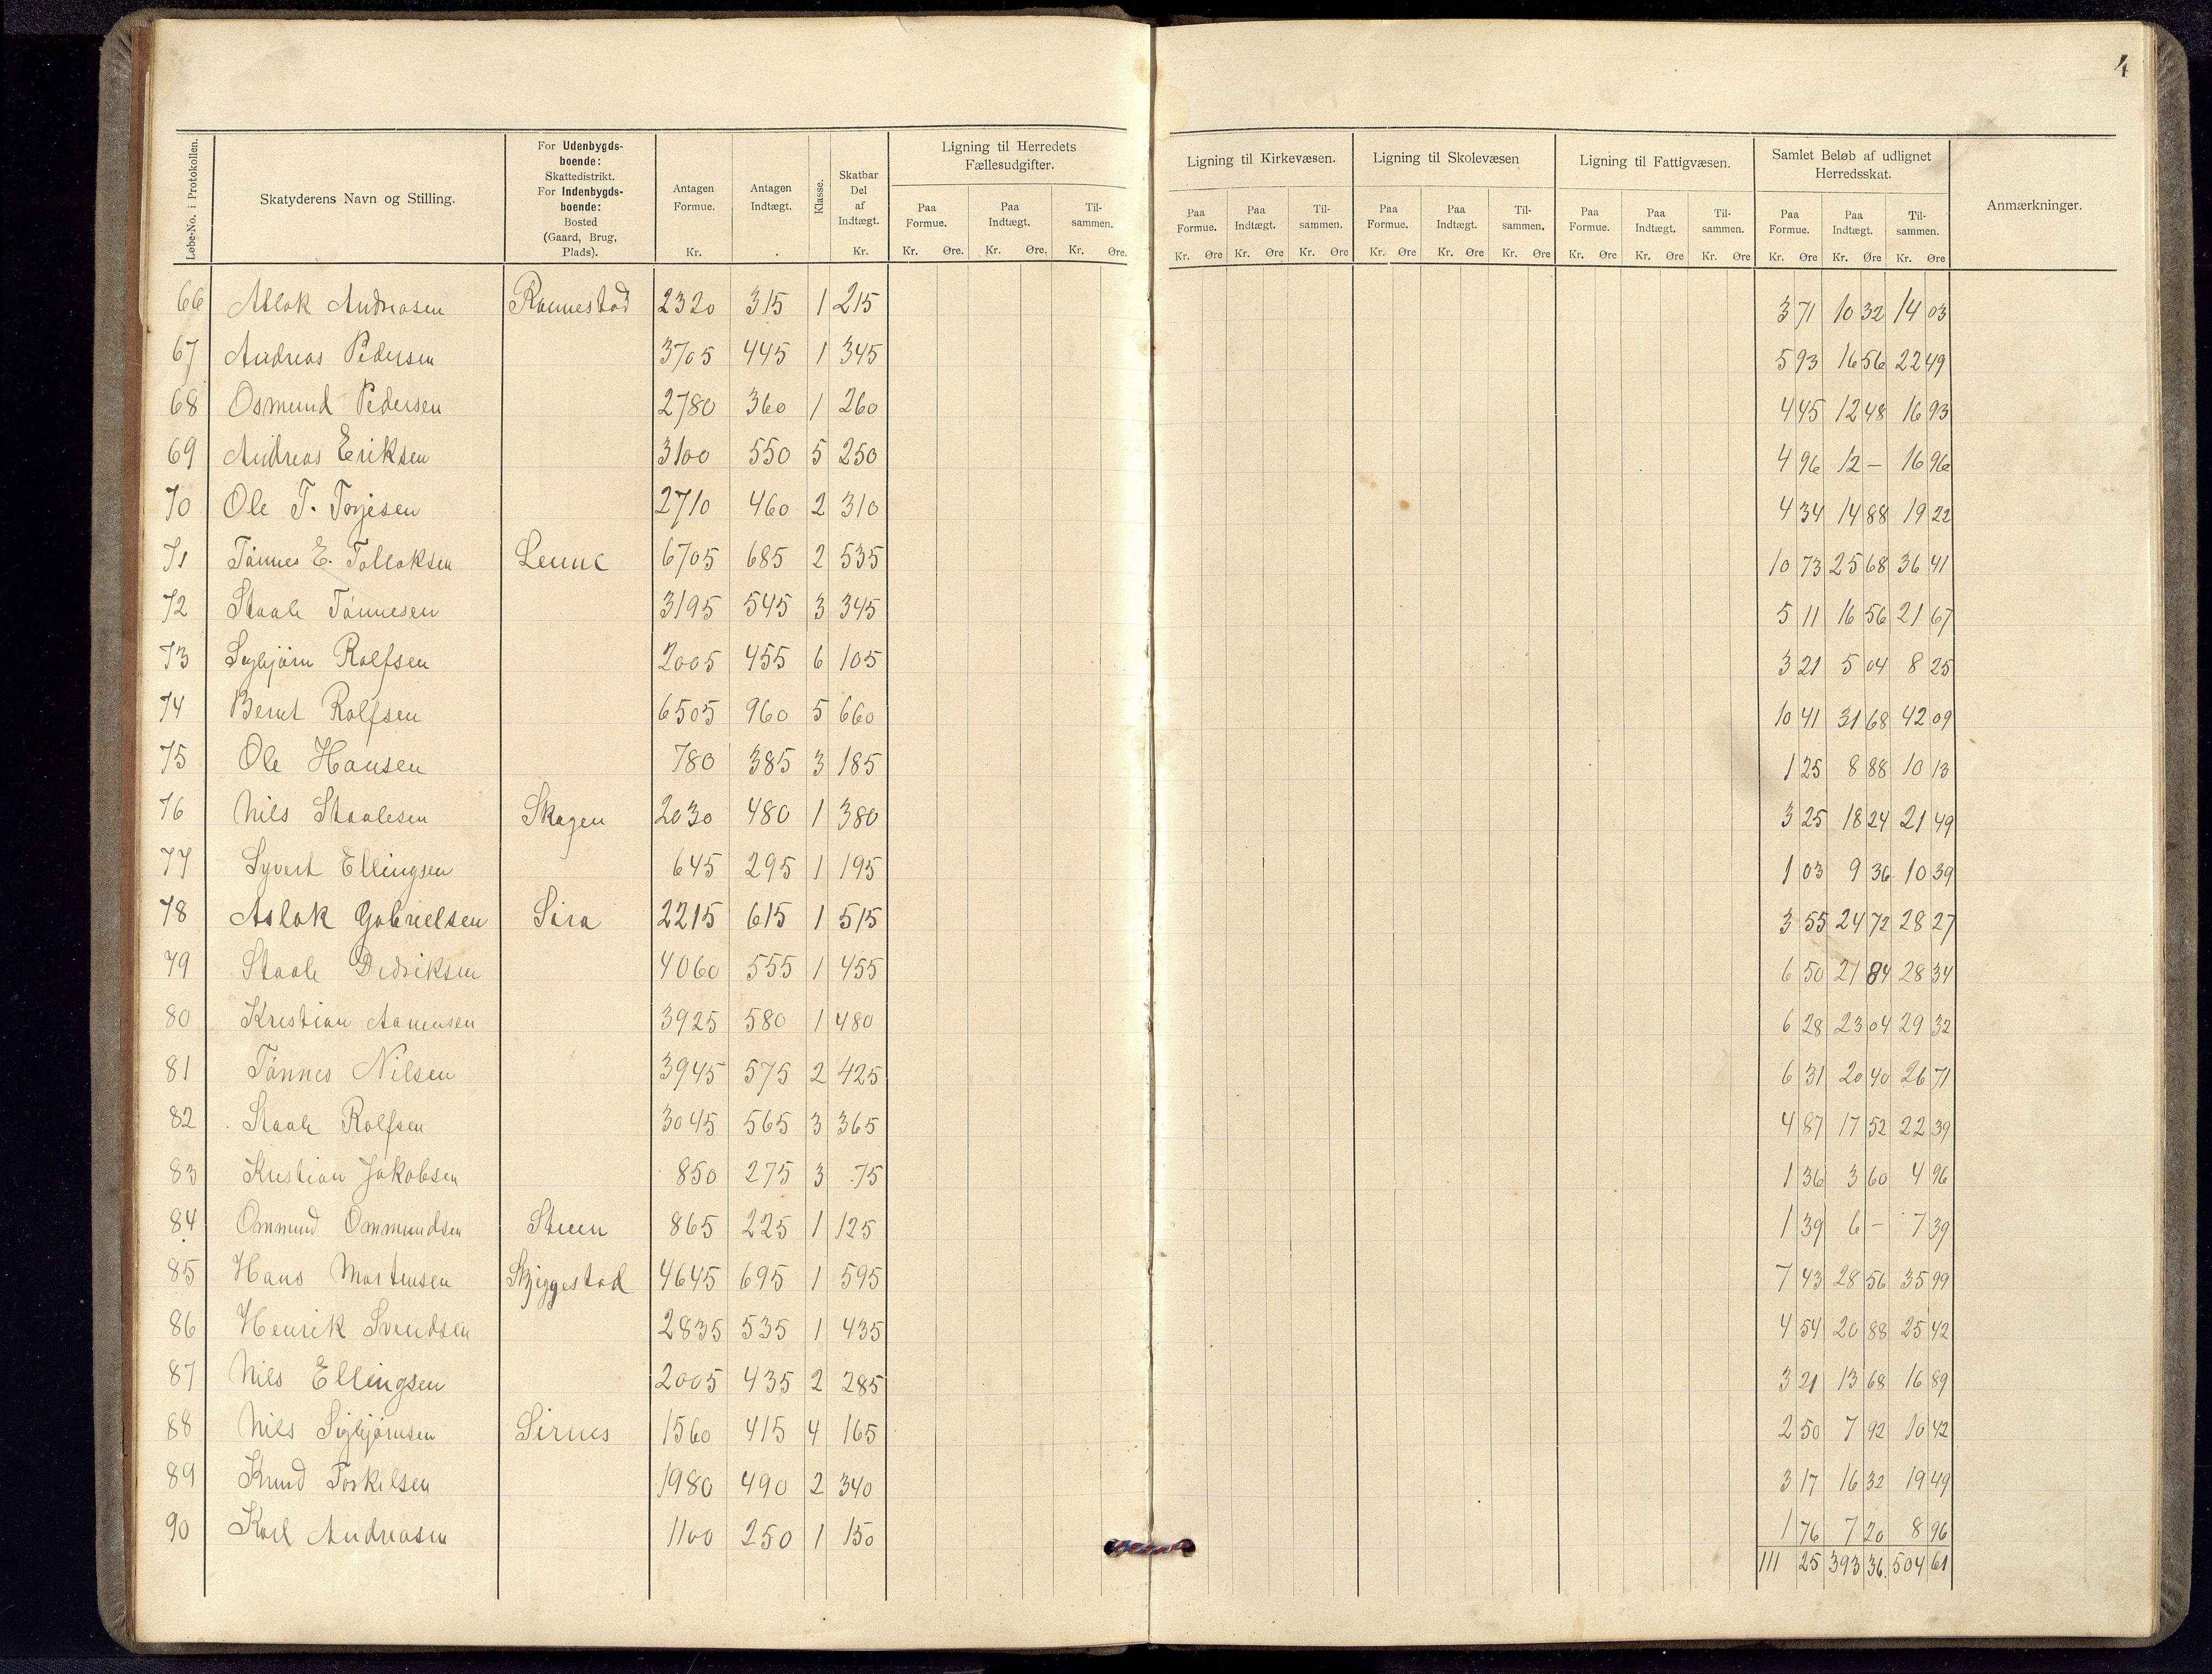 4
Løbe-No. i Protokollen. Skatyderens Navn og Stilling. For Udenbygdsboende: Skattedistrikt. For Indenbygdsboende: Bosted (Gaard, Brug, Plads). Antagen Formue. Kr. Antagen Indtægt. Klasse. Skatbar Del af Indtægt. Kr. Ligning til Herredets Fællesudgifter. Ligning til Kirkevæsen. Ligning til Skolevæsen Ligning til Fattigvæsen. Samlet Beløb af udlignet Herredsskat. Anmærkninger.
Paa Formue. Paa Indtægt. Tilsammen. Paa Formue. Paa Indtægt. Tilsammen. Paa Formue. Paa Indtægt. Tilsammen. Paa Formue. Paa Indtægt. Tilsammen. Paa Formue. Paa Indtægt. Tilsammen.
Kr. Øre. Kr. Øre. Kr. Øre. Kr. Øre Kr. Øre Kr. Øre Kr. Øre Kr. Øre Kr. Øre Kr. Øre Kr. Øre Kr. Øre Kr. Øre Kr. Øre Kr. Øre
66 Aslak Andreasen Rannestad 2320 315 1 215 3 71 10 32 14 03
67 Andreas Pedersen 3705 445 1 345 5 93 16 56 22 49
68 Osmund Pedersen 2780 360 1 260 4 45 12 48 16 93
69 Andreas Eriksen 3100 550 5 250 4 96 12 – 16 96
70 Ole T. Torjesen 2710 460 2 310 4 34 14 88 19 22
71 Tønnes E. Tollaksen Leune 6705 685 2 535 10 73 25 68 36 41
72 Staale Tønnesen 3195 545 3 345 5 11 16 56 21 67
73 Sigbjørn Rolfsen 2005 455 6 105 3 21 5 04 8 25
74 Bernt Rolfsen 6505 960 5 660 10 41 31 68 42 09
75 Ole Hansen 780 385 3 185 1 25 8 88 10 13
76 Nils Staalesen Skagen 2030 480 1 380 3 25 18 24 21 49
77 Syvert Ellingsen 645 295 1 195 1 03 9 36 10 39
78 Aslak Gabrielsen Sira 2215 615 1 515 3 55 24 72 28 27
79 Staale Didriksen 4060 555 1 455 6 50 21 84 28 34
80 Kristian Aanensen 3925 580 1 480 6 28 23 04 29 32
81 Tønnes Nilsen 3945 575 2 425 6 31 20 40 26 71
82 Staale Rolfsen 3045 565 3 365 4 87 17 52 22 39
83 Kristian Jakobsen 850 275 3 75 1 36 3 60 4 96
84 Ommund Ommundsen Steen 865 225 1 125 1 39 6 – 7 39
85 Hans Martensen Skjeggestad 4645 695 1 595 7 43 28 56 35 99
86 Henrik Svendsen 2835 535 1 435 4 54 20 88 25 42
87 Nils Ellingsen 2005 435 2 285 3 21 13 68 16 89
88 Nils Sigbjørnsen Sirnes 1560 415 4 165 2 50 7 92 10 42
89 Knud Torkilsen 1980 490 2 340 3 17 16 32 19 49
90 Karl Andreasen 1100 250 1 150 1 76 7 20 8 96
111 25 393 36 504 61